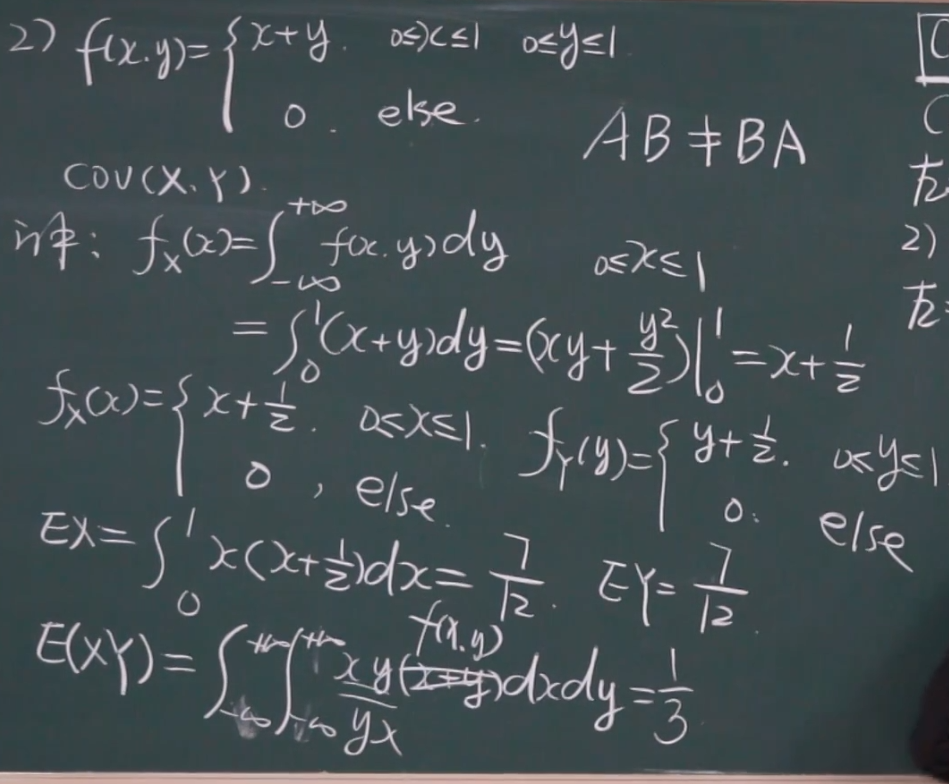 2) f(x.y)={ x+y. 0≤x≤1 0≤y≤1
0. else.
AB≠BA
COV(X.Y).
计: f_X(x)=∫_{-∞}^{+∞} f(x.y)dy 0≤x≤1
=∫_0^1(x+y)dy=(xy+y²/2)|_0^1=x+1/2
f_X(x)={ x+1/2. 0≤x≤1. f_Y(y)={ y+1/2. 0≤y≤1
0, else. 0. else
EX=∫_0^1 x(x+1/2)dx=7/12. EY=7/12.
f(x.y)
E(XY)=∫_{-∞}^{+∞}∫_{-∞}^{+∞} xy(x+y)dxdy=1/3
yx
2)